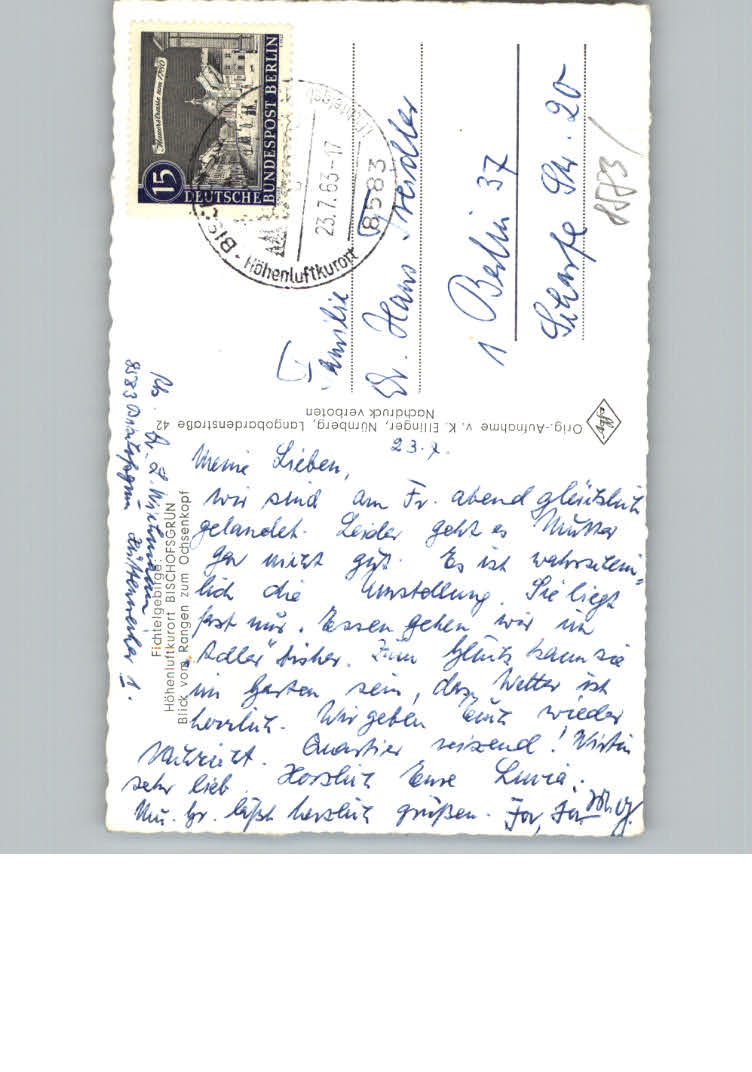 Mauerstrasse um 1780
15
DEUTSCHE
BUNDESPOST BERLIN
23.7.63-17
8583
Höhenluftkurort
Familie
Dr. Hans
1 Berlin 37
Scharfe Str. 20
Orig.-Aufnahme v. K. Ellinger, Nürnberg, Langobardenstraße 42
Nachdruck verboten
Fichtelgebirge:
Höhenluftkurort BISCHOFSGRÜN
Blick vom Rangen zum Ochsenkopf
8583 Bischofsgrün
23.7.
Meine Lieben,
wir sind am Fr. abend glücklich
gelandet. Leider geht es Mutter
gar nicht gut. Es ist wahrschein-
lich die Umstellung. Sie liegt
fast nur. Essen gehen wir im
"Adler" bisher. Zum Glück kann sie
im Garten sein, das Wetter ist
herrlich. Wir geben Euch wieder
Nachricht. Quartier reizend! Wirtin
sehr lieb. Herzlich Eure
Mu. Gr. läßt herzlich grüßen.